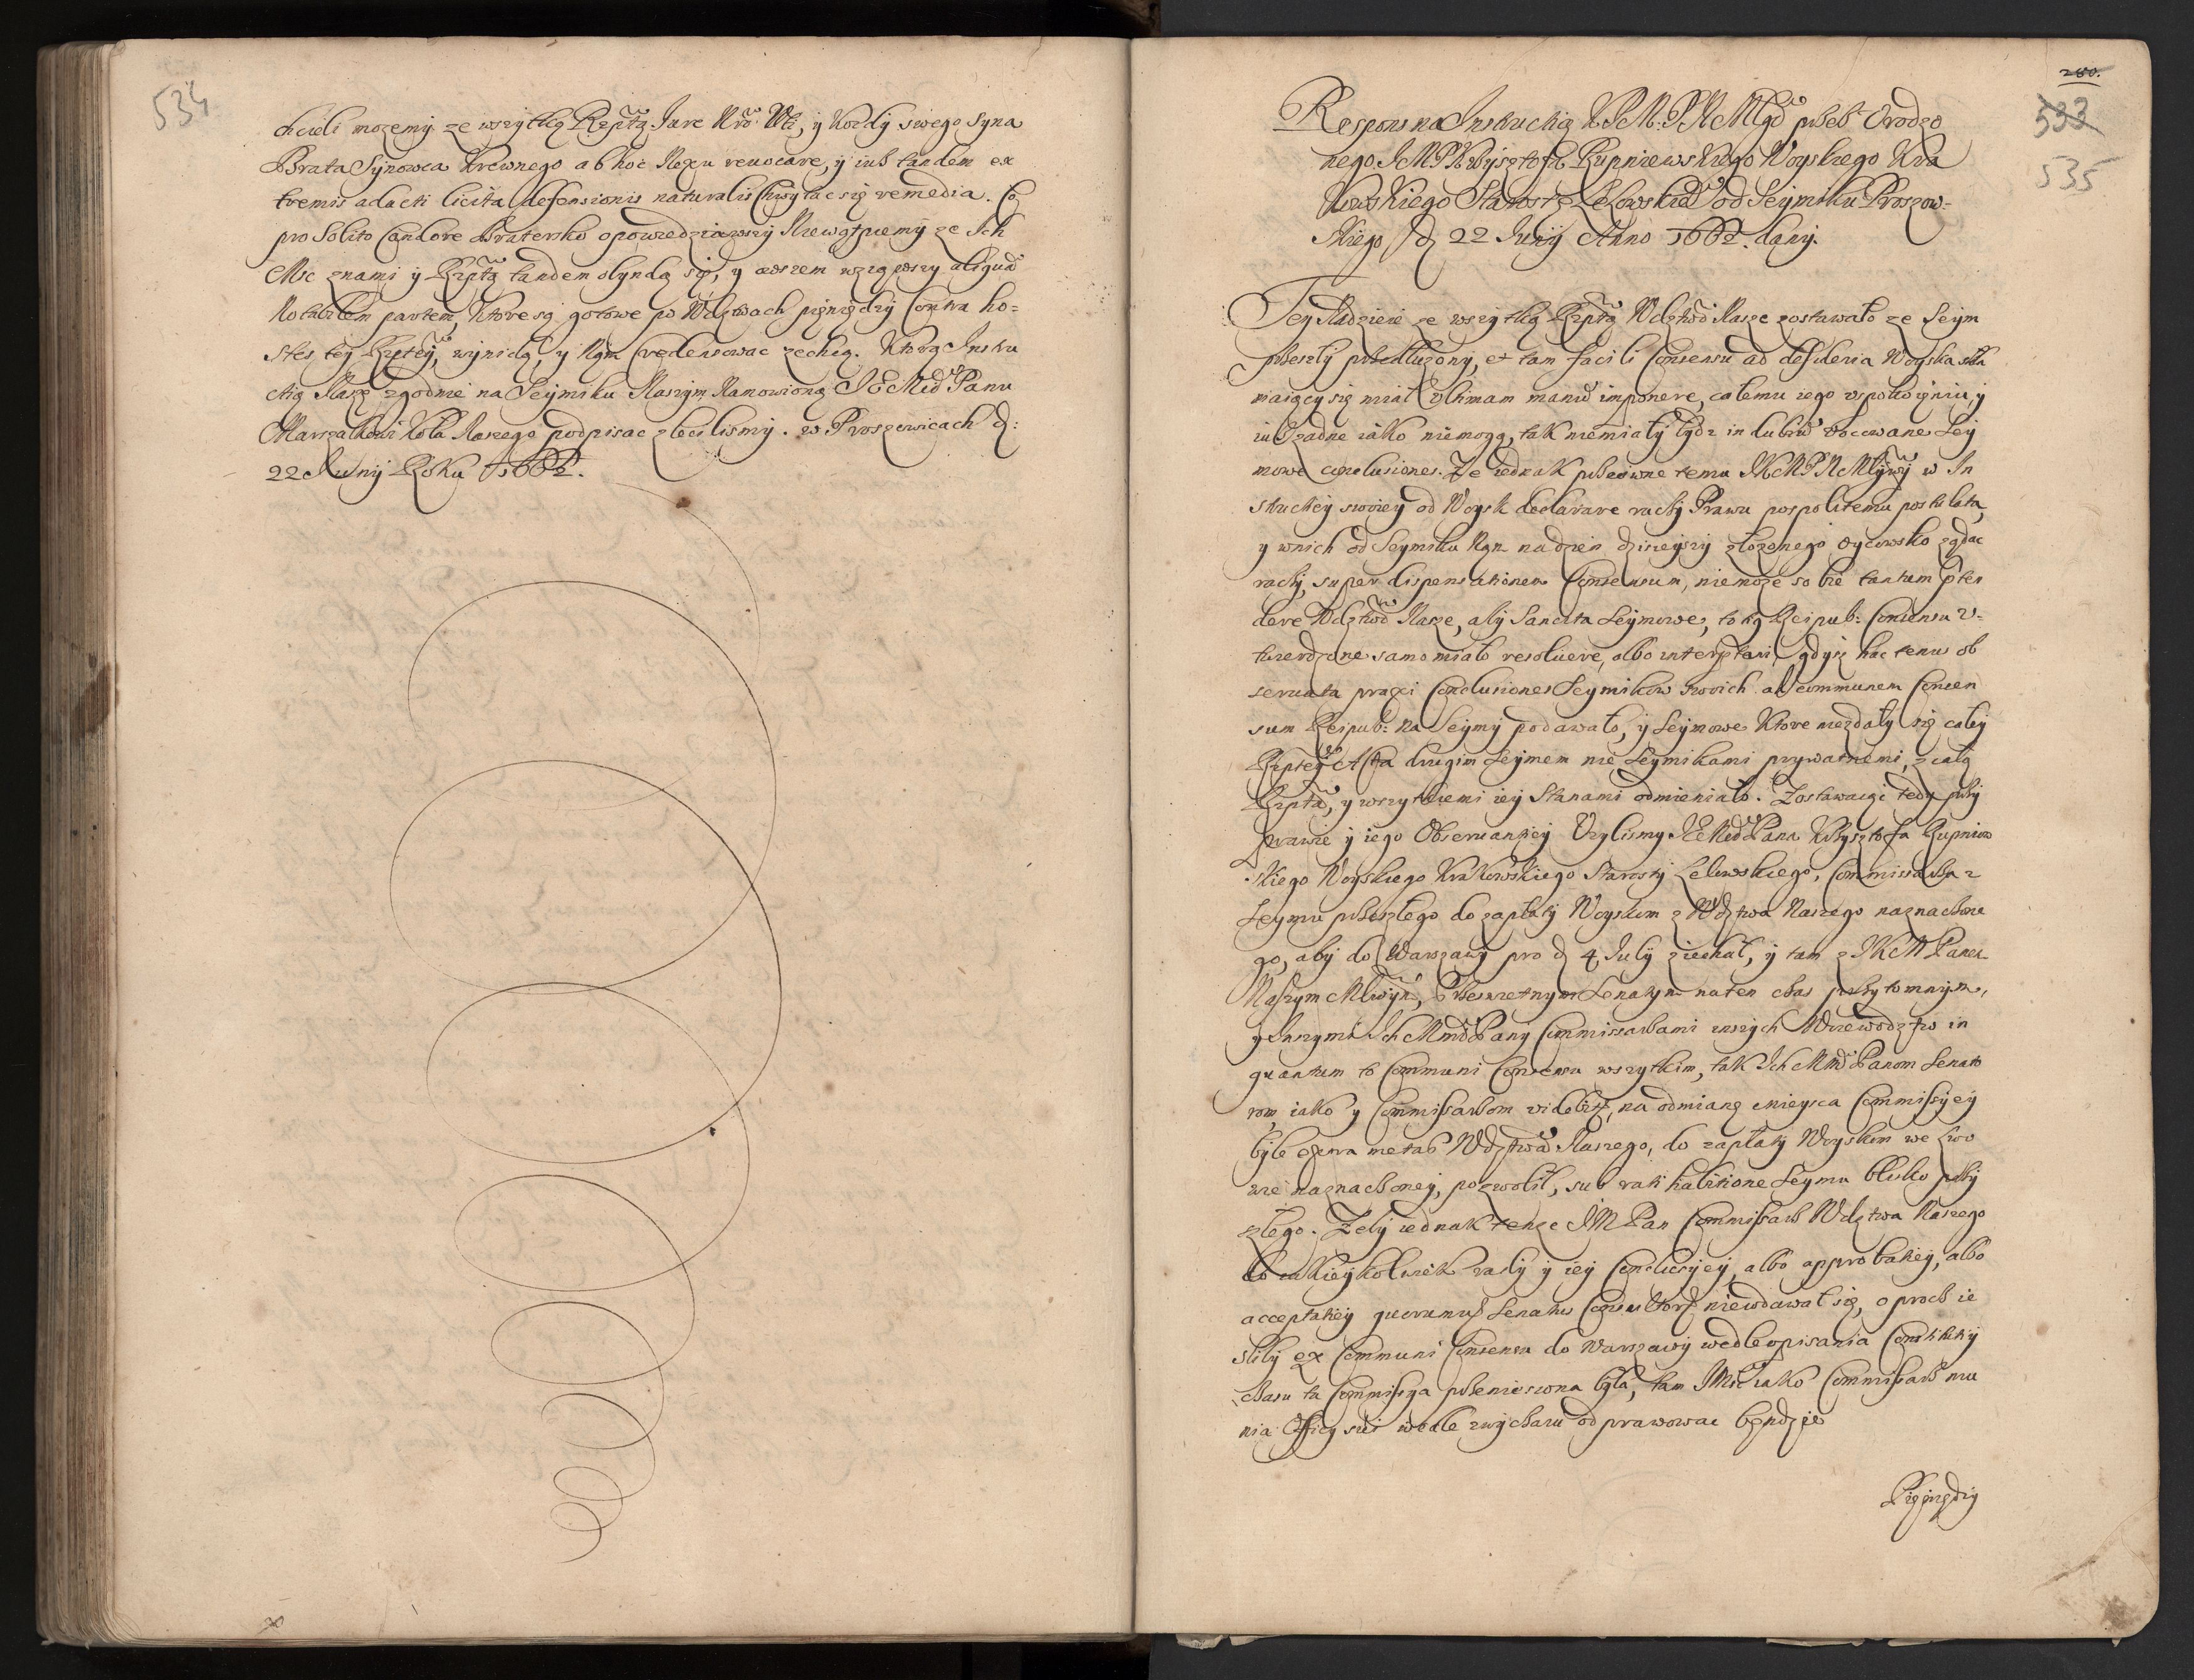 534
chcieli mozemy ze wszytką Rzptą Jure Nro Wti, y kozdy swego syna
Brata Synowca Krewnego ab hoc Nexu revocare, y iuż tandem ex
tremis adacti licita defensionis naturalis Chwytac się remedia. Co
pro Solito Candore Bratersko opowiedziawszy Niewątpiemy ze Ich
Mc znami y Rzptą tandem ządzą się, y owszem wziąwszy aliquam
Notabilem partem, Ktore są gotowe po Wdztwach pięniędzy Contra ho=
stes tey Rzptey, wynidą, y Nam credensowac zechcą. Ktorą Instru
ctią Nasze zgodnie na Seymiku Naszym Namowioną JEMćio Panu
Marszałkowi Koła Naszego podpisac zlecilismy. w Proszowicach d:
22 Junij Roku 1662.
260.
533
535
Respons na Instructią KJM: PNMłgo przez Urodzo
nego JeMP Krzysztofa Rupniewskiego Woyskiego Kra
kowskiego Starostę Zelowskieo od Seymiku Proszow=
skiego d 22 Junij Anno 1662. dany.
Tey Nadzieie ze wszytką Rzptą Wdztwo Nasze zostawało ze Seym
przeszły przedłuzony, et tam facili Consensu ad desideria Woyska skła
niaiący się miał Ultimam manum imponere, całemu iego uspokoięniu, y
iuż zadne iako niemogą, tak niemiały bydz in dubium vocowane Sey
mowe conclusiones. Ze iednak przeciwne temu JKMPNMłwy w In
structiey swoiey od Woysk declarare raczy Prawu pospolitemu postulata,
y wnich od Seymiku Nam na dzien dzisieyszy złozonego oycowsko ządac
raczy, super dispensationem Consensum, niemoze sobie tantum prten
dere Wdztwo Nasze, aby Sancita Seymowe, totą Reipub: Consensu u=
twerdzone samo miało resolvere, albo interptari, gdysz hactenus ob
servata praxi Conclusiones Seymikow swoich ad communem Consen
sum Reipub: na Seymy podawało, y Seymowe Ktore niezdały się całey
Rzptey Acta drugim Seymem nie Seymikami prywatnemi, z całą
Rzptą, y wszytkiemi iey Stanami odmieniało. Zostawaiąc tedy przy
Prawie y iego Observantiey Uzylismy JEMćio Pana Krzysztofa Rupniew
skiego Woyskiego Krakowskiego Starosty Zelowskiego, Commissarza z
Seymu przeszłego do zapłaty Woyskom z Wdztwa Naszego naznaczone
go, aby do Warszawy pro d 4 July ziechał, y tam z JKM Panem
Naszym Młwym, Przeswietnym Senatem na ten czas przytomnym,
y Inszymi Ich Mmci Pany Commissarzami inszych Woiewodztw in
quantum to Communi Consensu wszytkim, tak Ich Mmci Panom Senato
rom iako y Commissarzom widobisz, na odmianę mieysca Commissyey
byle extra metas Wdztwa Naszego, do zapłaty Woyskom we Lwo
wie naznaczoney, pozwolił, sub ratihabitione Seymu blisko przy
szłego. Zeby iednak tenze JM Pan Commissarz Wdztwa Naszego
do iakieykolwiek rady y iey Conclusyey, albo approbatiey, albo
acceptatiey quorumvis Senatus Consultorum niewdawał się, oprocz ie
sliby ex Communi Consensu do Warszawy wedle opisania Constitutiy
czasu ta Commissya przeniesiona była, tam JMc iako Commissarz mu
nia Officij sui wedle zwyczaiu odprawowac będzie
Pięniędzy